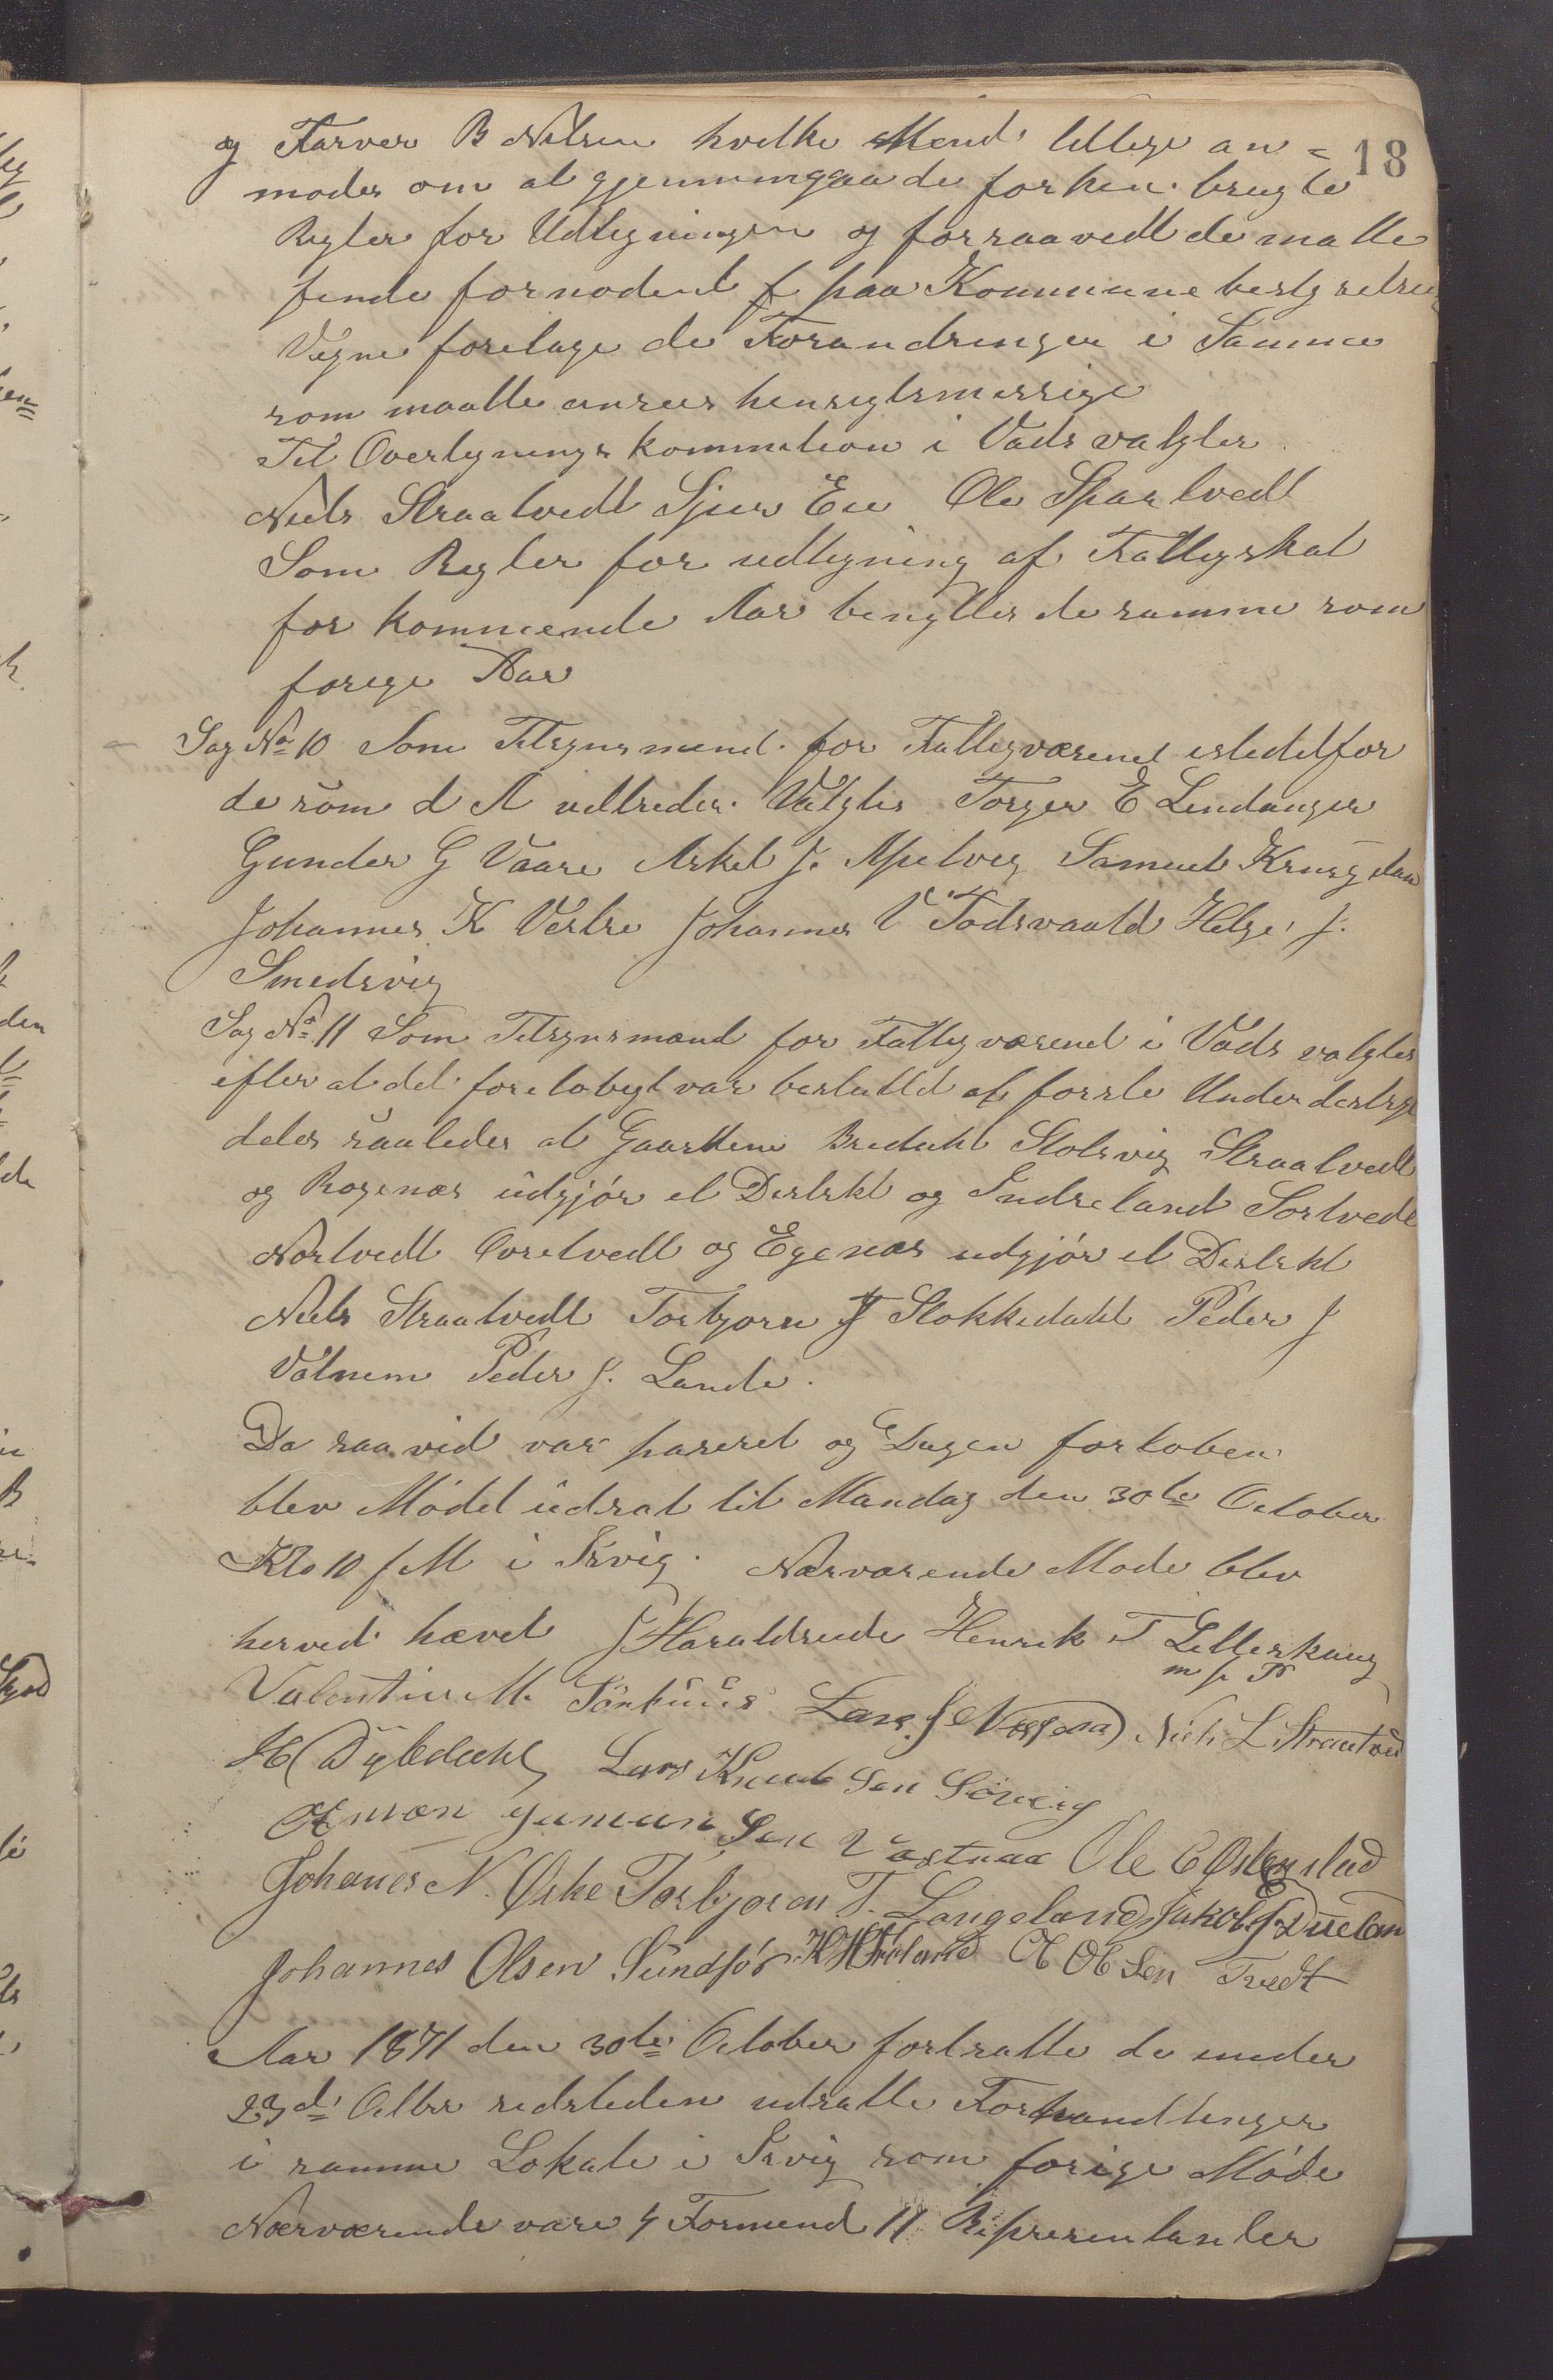 18
og Farver B Nilsen hvilke Mend tillige an=
modes om at gjennemgaa de forhen brugte
Regler for Udligningen og forsaavedt de matte
finde fornodent paa Kommunebestyrelsens
Vegne foretage de Forandringer i Samme
som maatte ansees hensigtsmessige
Til Overligningskommision i Vads valgter
Niels Straatvedt Sjur Eie Ole Spartvedt
Som Regler for udligning af Fattigskat
for kommende Aar benyttes de samme som
forige Aar
Sag No 10 Som Tilsynsmend for Fattigværenet istedetfor
de som d A udtreder Valgtes Torger E Lindanger
Gunder G Vaare Askel J. Apelvig Samuel
Johannes K Vestre Johannes V Todsvaald Helge J.
Smedsvig
Sag No 11 Som Tilsynsmænd for Fattigværenet i Vads valgtes
efter at det forelobigt var besluttet at forste Underdestrgt
deles saaledes at Gaardene Bredahl Stolsvig Straatvedt
og Rogenæs udgjør et Destrkt og Indreland Sortvedt
Nortvedt Ovretvedt og Egenæs udgjør et Destrkt
Niels Straatvedt Torbjorn J Stokkedahl Peder J
Valnem Peder J. Lande.
Da saavid var paseret og Dagen forloben
blev Mødet udsat til Mandag den 30te October
Kl 10 f M i Ilsvig. Nærværende Mode blev
herved hævet J Haraldseide Henrik T Litleskoug
m p P
Valentin M. Lars J Niels L Straatved
H Dybdahl Lars Knudsen Sövig
Amon Gumunsen Vastraa Ole E Østenstad
Johanes N. Øske Torbjoren T. Langeland Jakob J Dueland
Johannes Olsen Sundför H H O Olsen Tvedt
Aar 1871 den 30te October fortsatte de under
23de Octbr sidsteden udsatte Forhandlinger
i samme Lokale i Ilsvig som forige Møde
Nærværende vare 4 Formend 11 Represenlanter